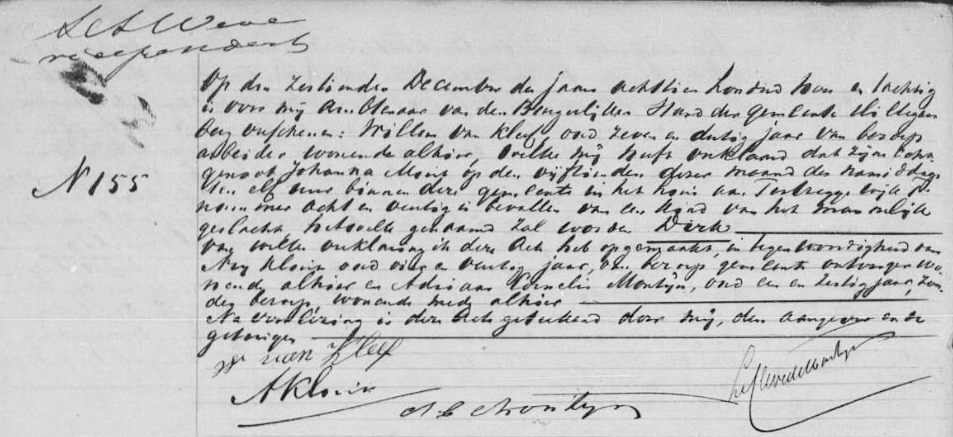 N 155
Op den zestienden December des jaars achttien honderd twee en tachtig
is voor mij Ambtenaar van den Burgerlijken Stand der gemeente Hillegers
berg verschenen: Willem van Kleef, oud zeven en dertig jaar van beroep
arbeider wonende alhier, welke mij heeft verklaard dat zijne echt
genoot Johanna Mout op den vijftienden dezer maand des namiddags
ten elf ure binnen deze gemeente in het huis aan Terbregge wijk
nommer acht en veertig is bevallen van een Kind van het mannelijk
geslacht hetwelk genaamd zal worden Dirk
van welke verklaring ik deze Acte heb opgemaakt, in tegenwoordigheid van
Klouis oud vier en veertig jaar, van beroep gemeente ontvanger wo
nende alhier en Adriaan Cornelis Montijn, oud een en zestig jaar, zon
der beroep, wonende mede alhier
Na voorlezing is deze Acte geteekend door mij, den aangever en de
getuigen
W van Kleef
A Klouis
A C Montijn